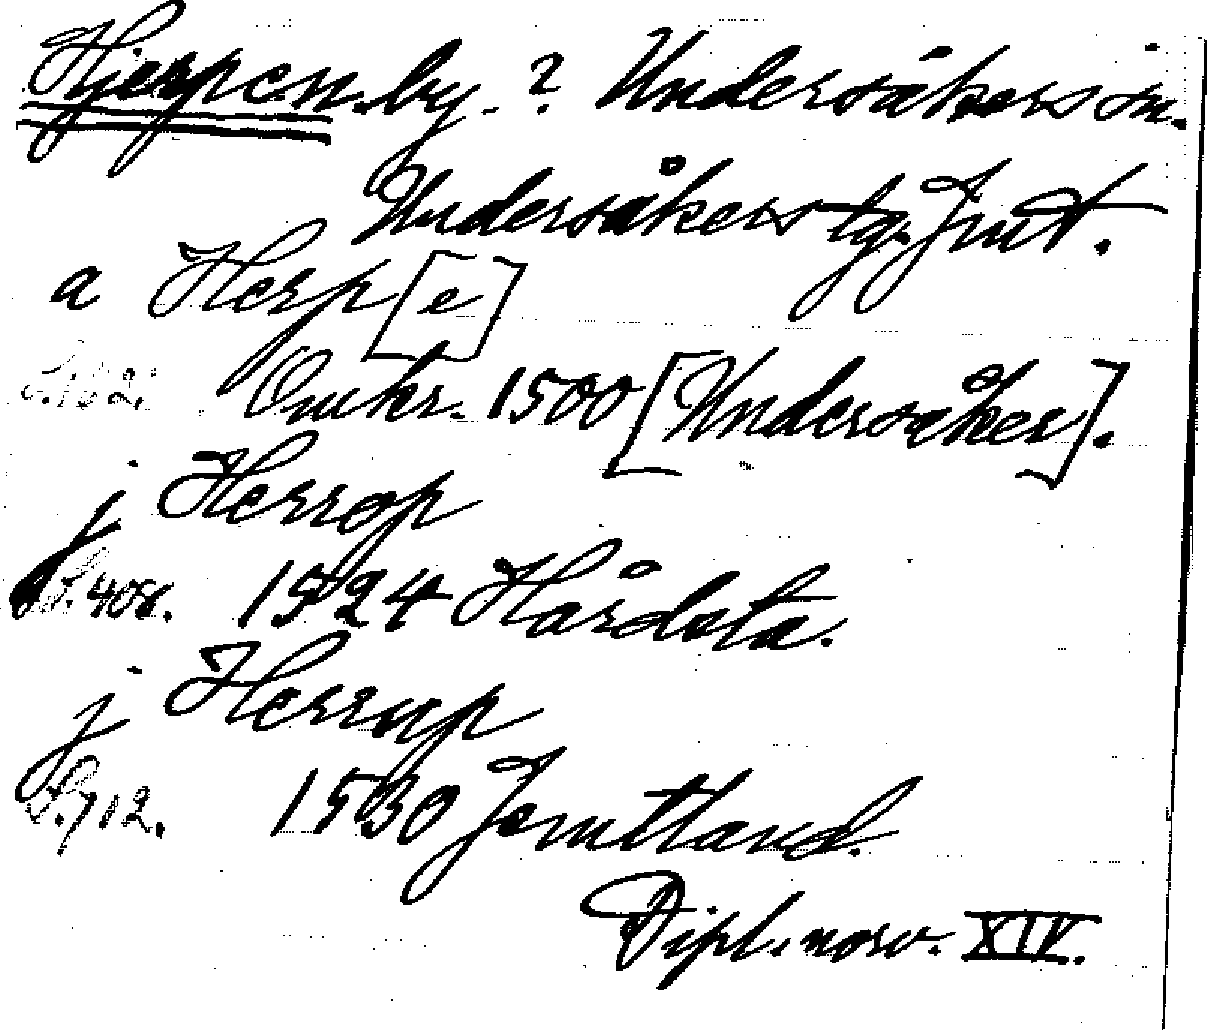 Hjerpen. by. ? Undersåkers sn.
Undersåkers tg. Jmt.
a Herp[e]
S. 182. Omkr. 1500 [Undersåker].
j Herrop
S. 408. 1524 Hårdsta.
j Herrup
S. 712. 1530 Jemtland.
Dipl. norv. XIV.